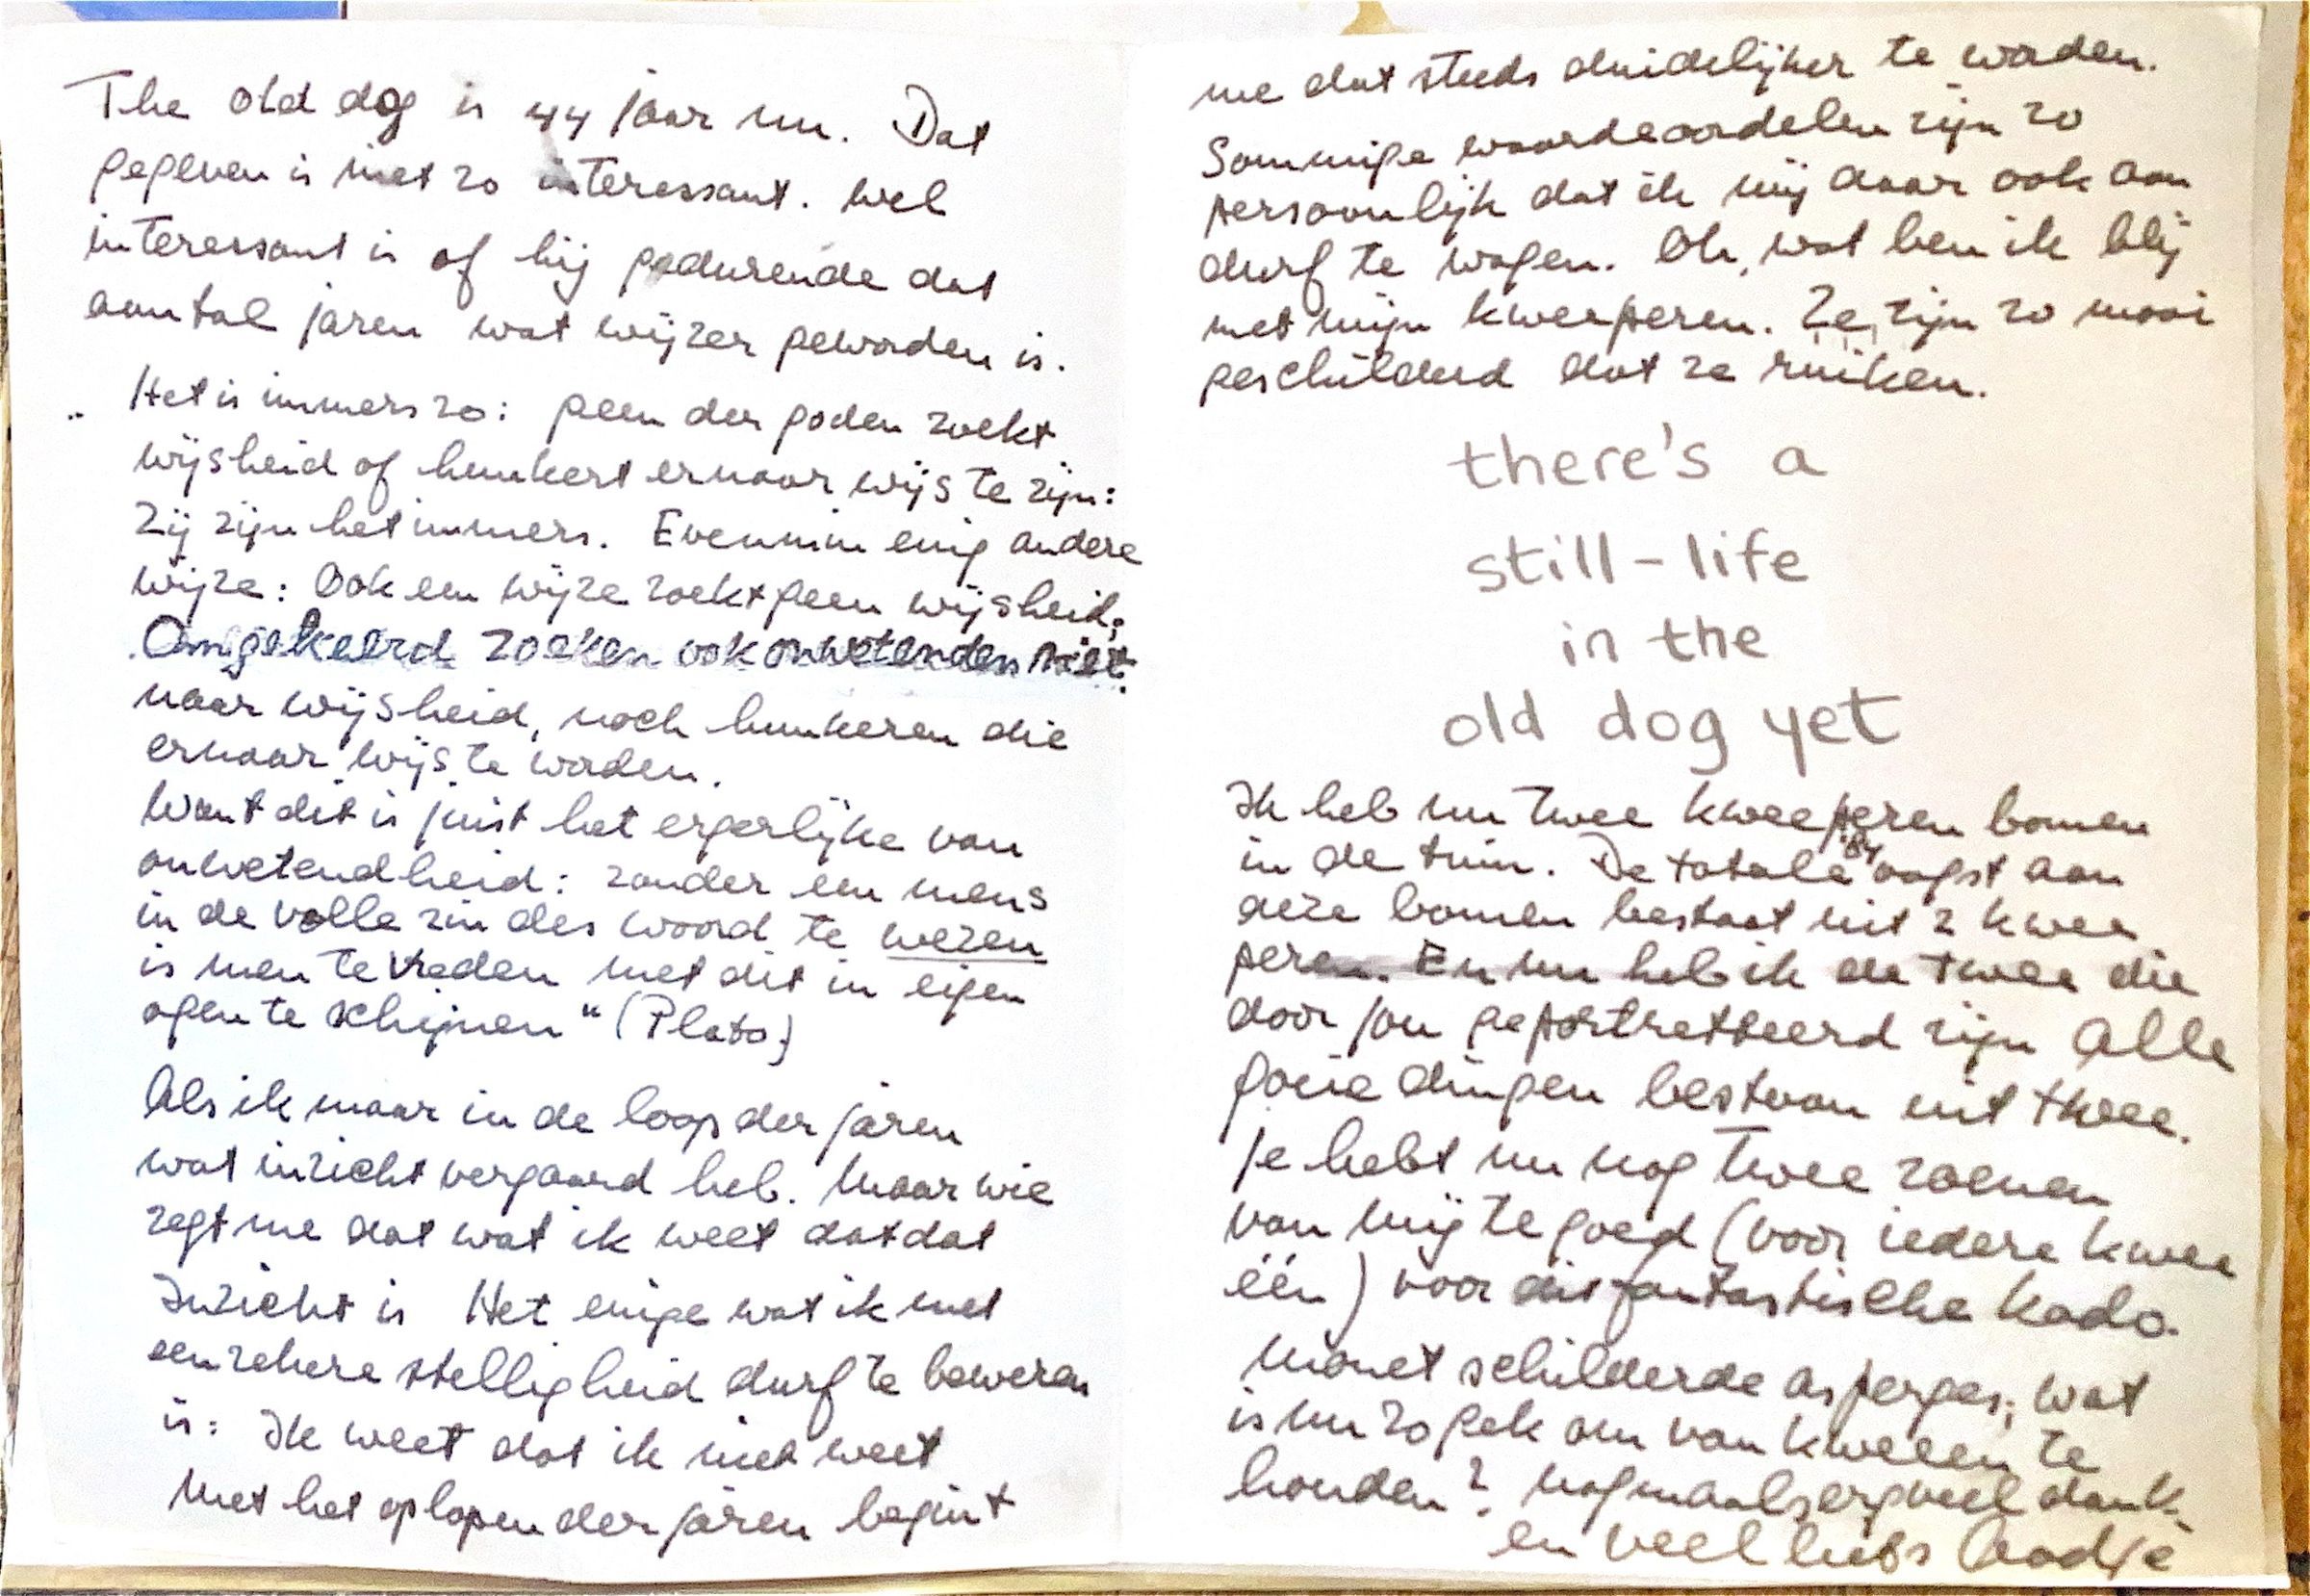 The old dog is 44 jaar nu. Dat
gegeven is niet zo interessant. Wel
interessant is of hij gedurende dat
aantal jaren wat wijzer geworden is.
„ Het is immers zo: geen der goden zoekt
wijsheid of hunkert ernaar wijs te zijn:
Zij zijn het immers. Evenmin enig andere
wijze: Ook een wijze zoekt geen wijsheid;
Omgekeerd zoeken ook onwetenden niet
naar wijsheid, noch hunkeren die
ernaar wijs te worden.
Want dit is juist het ergerlijke van
onwetendheid: zonder een mens
in de volle zin des woord te wezen
is men tevreden met dit in eigen
ogen te schijnen" (Plato)
Als ik maar in de loop der jaren
wat inzicht vergaard heb. Maar wie
zegt me dat wat ik weet dat dat
Inzicht is Het enige wat ik met
een zekere stelligheid durf te beweren
is: Ik weet dat ik niet weet
Met het oplopen der jaren begint
me dat steeds duidelijker te worden.
Sommige waardeoordelen zijn zo
persoonlijk dat ik mij daar ook aan
durf te wagen. Oh, wat ben ik blij
met mijn kweeperen. Ze zijn zo mooi
geschilderd dat ze ruiken.
there's a
still-life
in the
old dog yet
Ik heb nu twee kweeperen bomen
in de tuin. De totale '84 oogst aan
deze bomen bestaat uit 2 kwee
peren. En nu heb ik de twee die
door jou geportretteerd zijn Alle
goeie dingen bestaan uit twee.
Je hebt nu nog twee zoenen
van mij te goed (voor iedere kwee
één) voor dit fantastische kado.
Monet schilderde asperges; wat
is nu zo gek om van kweeën te
houden? Nogmaals erg veel dank
en veel liefs Aadje